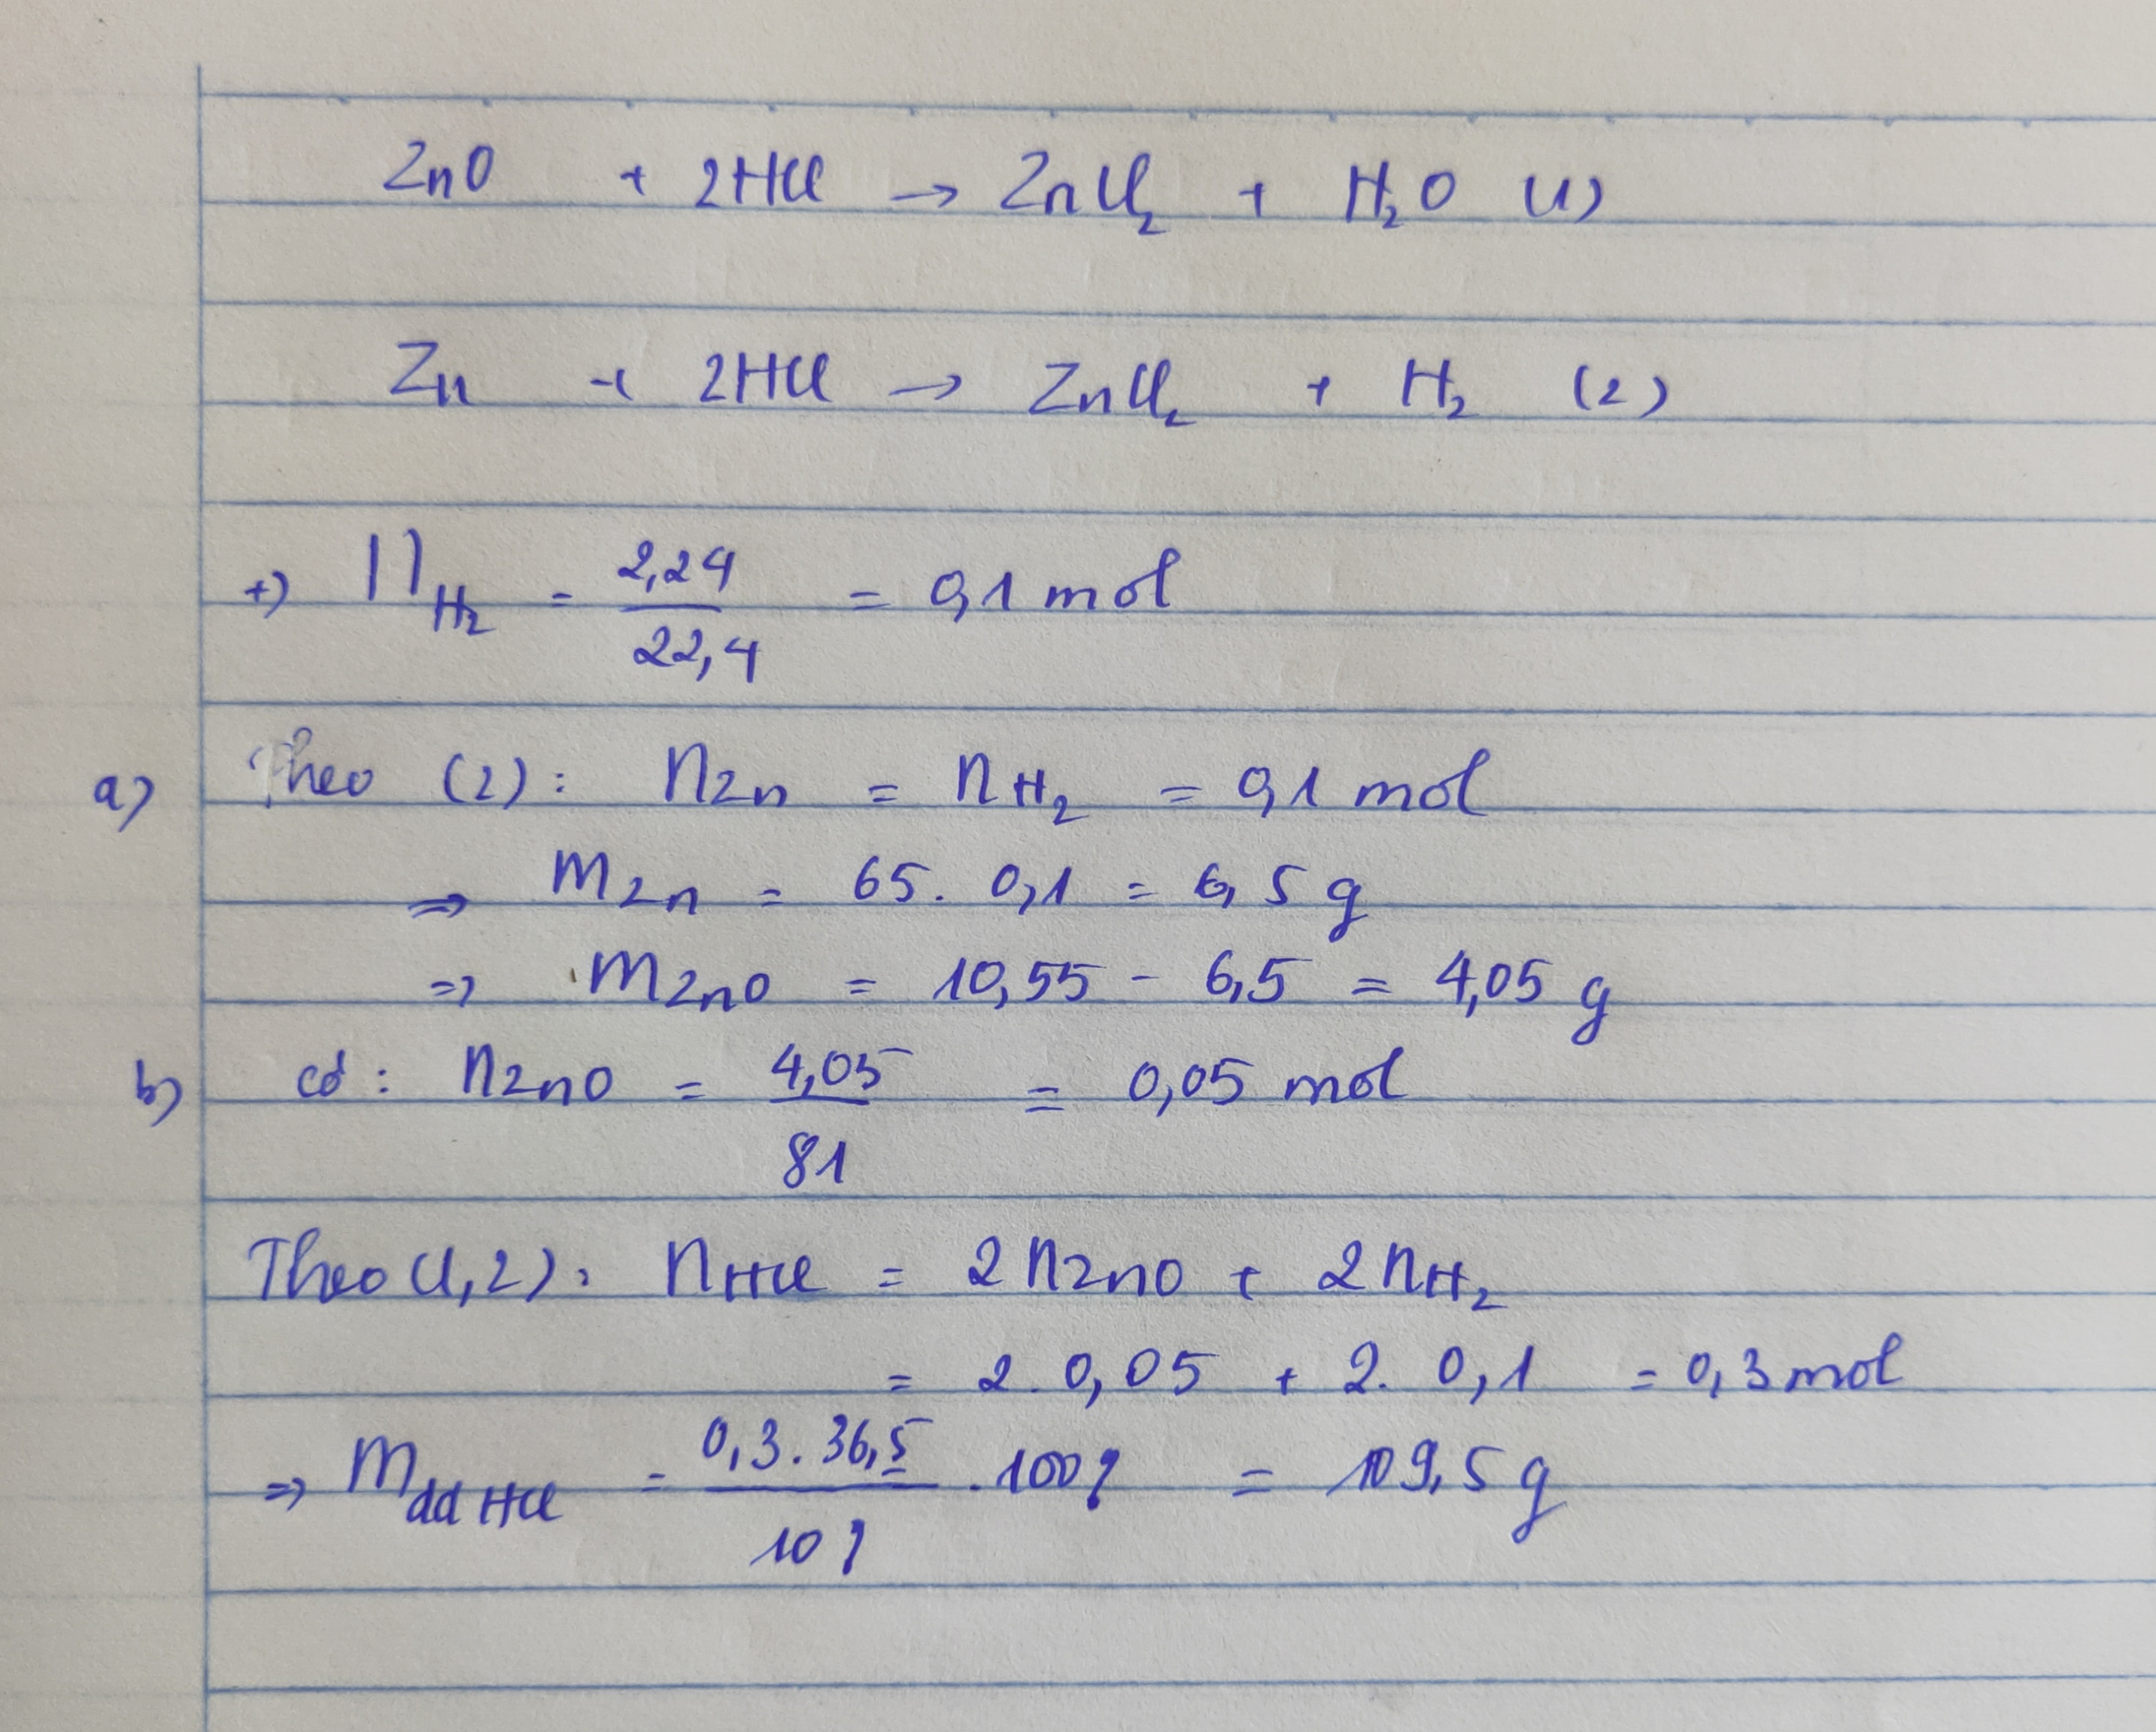 ZnO + 2HCl → ZnCl₂ + H₂O (1)
Zn + 2HCl → ZnCl₂ + H₂ (2)
+) n_H₂ = 2,24/22,4 = 0,1 mol
a) Theo (2): n_Zn = n_H₂ = 0,1 mol
⇒ m_Zn = 65. 0,1 = 6,5 g
⇒ m_ZnO = 10,55 - 6,5 = 4,05 g
b) có: n_ZnO = 4,05/81 = 0,05 mol
Theo (1,2): n_HCl = 2n_ZnO + 2n_H₂
= 2. 0,05 + 2. 0,1 = 0,3 mol
⇒ m_dd HCl = 0,3. 36,5/10% .100% = 109,5 g